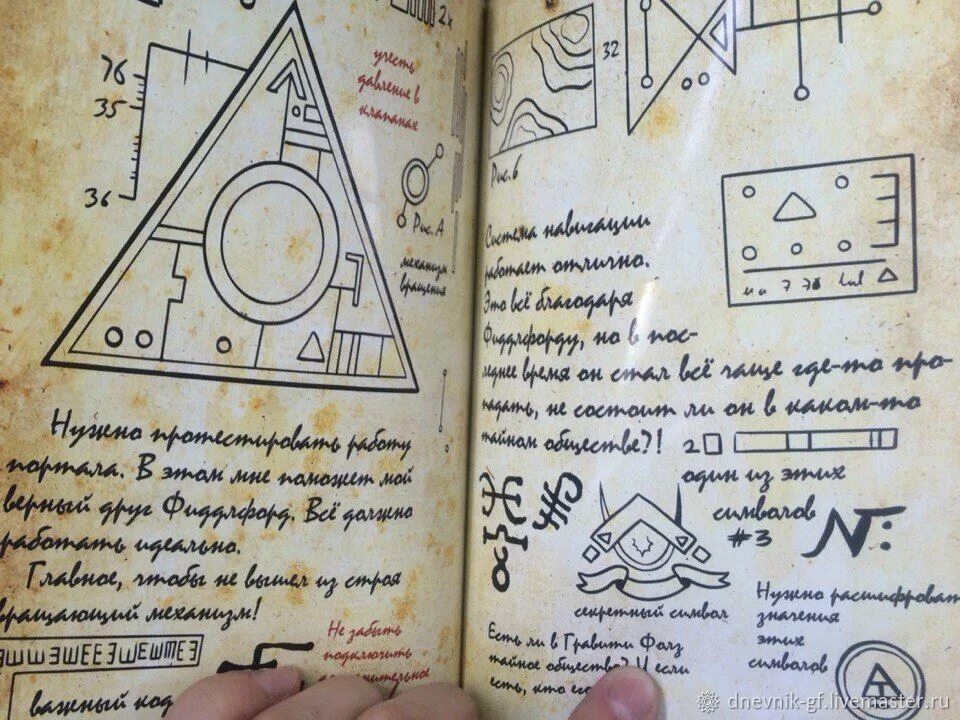 2x
76
35
36
учесть
давление в
клапанах
Рис. А
механизм
вращения
Нужно протестировать работу
портала. В этом мне поможет мой
верный друг Фиддлфорд. Всё должно
работать идеально.
Главное, чтобы не вышел из строя
вращающий механизм!
Не забыть
подключить
важный код
32
Рис. Б
Система навигации
работает отлично.
Это всё благодаря
Фиддлфорду, но в пос-
леднее время он стал всё чаще где-то про-
падать, не состоит ли он в каком-то
тайном обществе?!
2
один из этих
символов
#3
секретный символ
Нужно расшифровать
значения
этих
символов
Есть ли в Гравити Фолз
тайное общество? И если
есть, кто его
dnevnik-gf.livemaster.ru